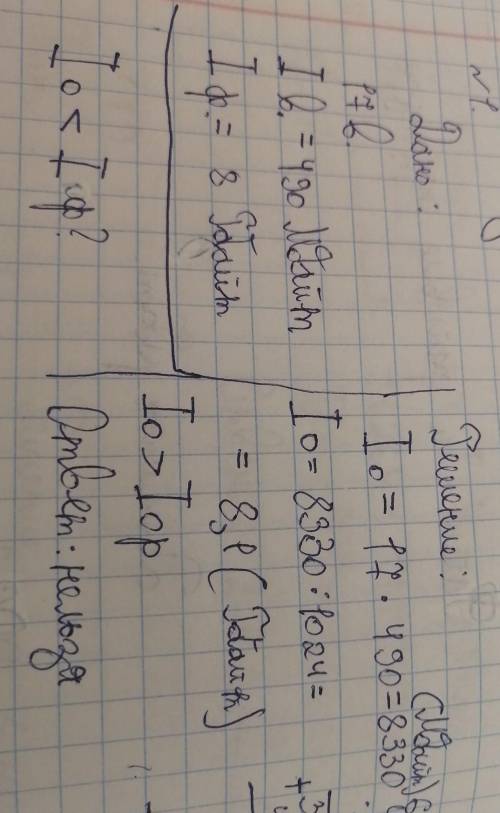 №1.
Дано:
17 в.
I в. = 490 Мбайт
I ф. = 8 Гбайт
I о < I ф?
Решение:
I о = 17 · 490 = 8330 (Мбайт)
I о = 8330 : 1024 =
= 8,1 (Гбайт)
I о > I ф
Ответ: нельзя